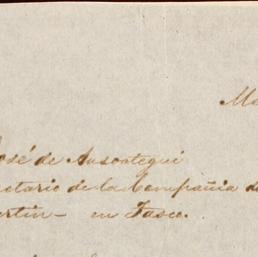 Me
José de Ansoategui
cretario de la Compañia de
artin — en Tasco.